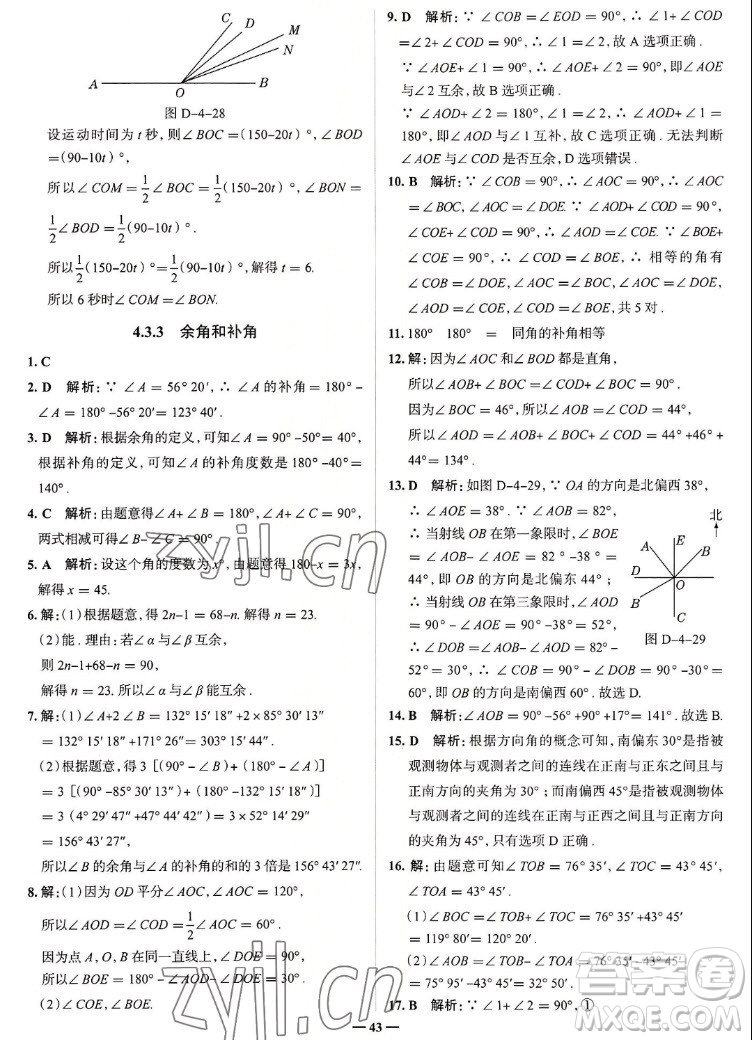 C
D
M
N
A
O
B
图 D-4-28
设运动时间为 t 秒,则∠BOC=(150-20t)°,∠BOD
=(90-10t)°,
所以∠COM=1/2∠BOC=1/2(150-20t)°,∠BON=
1/2∠BOD=1/2(90-10t)°.
所以1/2(150-20t)=1/2(90-10t),解得 t=6.
所以 6 秒时∠COM=∠BON.
4.3.3 余角和补角
1. C
2. D 解析:∵∠A=56°20′,∴∠A的补角=180°-
∠A=180°-56°20′=123°40′.
3. D 解析:根据余角的定义,可知∠A=90°-50°=40°,
根据补角的定义,可知∠A的补角度数是180°-40°=
140°.
4. C 解析:由题意得∠A+∠B=180°,∠A+∠C=90°,
两式相减可得∠B-∠C=90°.
5. A 解析:设这个角的度数为x°,由题意得180-x=3x,
解得 x=45.
6. 解:(1)根据题意,得 2n-1=68-n. 解得 n=23.
(2)能. 理由:若∠α与∠β互余,
则 2n-1+68-n=90,
解得 n=23. 所以∠α与∠β能互余.
7. 解:(1)∠A+2∠B=132°15′17″+2×85°30′13″
=132°15′17″+171°26″=303°15′43″.
(2)根据题意,得 3[(90°-∠B)+(180°-∠B)]
=3[(90°-85°30′13″)+(180°-132°15′17″)]
=3(4°29′47″+47°44′42″)=3×52°14′29″
=156°43′27″,
所以∠B的余角与∠A的补角的和的3倍是156°43′27″.
8. 解:(1)因为 OD 平分∠AOC,∠AOC=120°,
所以∠AOD=∠COD=1/2∠AOC=60°.
因为点 A,O,B 在同一直线上,∠DOE=90°,
所以∠BOE=180°-∠AOD-∠DOE=30°.
(2)∠COE,∠BOE.
9. D 解析:∵∠COB=∠EOD=90°,∴∠1+∠COD
=∠2+∠COD=90°,∴∠1=∠2,故 A 选项正确.
∵∠AOE+∠1=90°,∴∠AOE+∠2=90°,即∠AOE
与∠2互余,故 B 选项正确.
∵∠AOD+∠2=180°,∠1=∠2,∴∠AOD+∠1=
180°,即∠AOD与∠1互补,故 C 选项正确. 无法判断
∠AOE与∠COD是否互余,D 选项错误.
10. B 解析:∵∠COB=90°,∴∠AOC=90°,∴∠AOC
=∠BOC,∠AOC=∠DOE. ∵∠AOD+∠COD=90°,
∠COE+∠COD=90°,∴∠AOD=∠COE. ∵∠BOE+
∠COE=90°,∴∠COD=∠BOE,∴相等的角有
∠COB=∠DOE,∠AOC=∠BOC,∠AOC=∠DOE,
∠AOD=∠COE,∠COD=∠BOE,共5对.
11. 180° 180° = 同角的补角相等
12. 解:因为∠AOC和∠BOD都是直角,
所以∠AOB+∠BOC=∠COD+∠BOC=90°.
因为∠BOC=46°,所以∠AOB=∠COD=44°,
所以∠AOD=∠AOB+∠BOC+∠COD=44°+46°+
44°=134°.
13. D 解析:如图 D-4-29,∵OA的方向是北偏西38°,
∴∠AOE=38°. ∵∠AOB=82°,
∴当射线OB在第一象限时,∠BOE
=∠AOB-∠AOE=82°-38°=
44°,即OB的方向是北偏东44°;
当射线OB在第三象限时,∠AOD
=90°-∠AOE=90°-38°=52°,
∴∠DOB=∠AOB-∠AOD=82°-
52°=30°,∴∠BOC=90°-∠DOB=90°-30°=
60°,即OB的方向是南偏西60°. 故选D.
北
A
E
B
D
O
B
C
图 D-4-29
14. B 解析:∠AOB=90°-56°+90°+17°=141°. 故选B.
15. D 解析:根据方向角的概念可知,南偏东30°是指被
观测物体与观测者之间的连线在正南与正东之间且与
正南方向的夹角为30°;而南偏西45°是指被观测物体
与观测者之间的连线在正南与正西之间且与正南方向
的夹角为45°,只有选项D正确.
16. 解:由题意可知∠TOB=76°35′,∠TOC=43°45′,
∠TOA=43°45′.
(1)∠BOC=∠TOB+∠TOC=76°35′+43°45′
=119°80′=120°20′.
(2)∠AOB=∠TOB-∠TOA=76°35′-43°45′
=75°95′-43°45′=32°50′.
17. B 解析:∵∠1+∠2=90°,①
43
zyjl.cn
zyjl.cn
答案卷
MXQE.COM